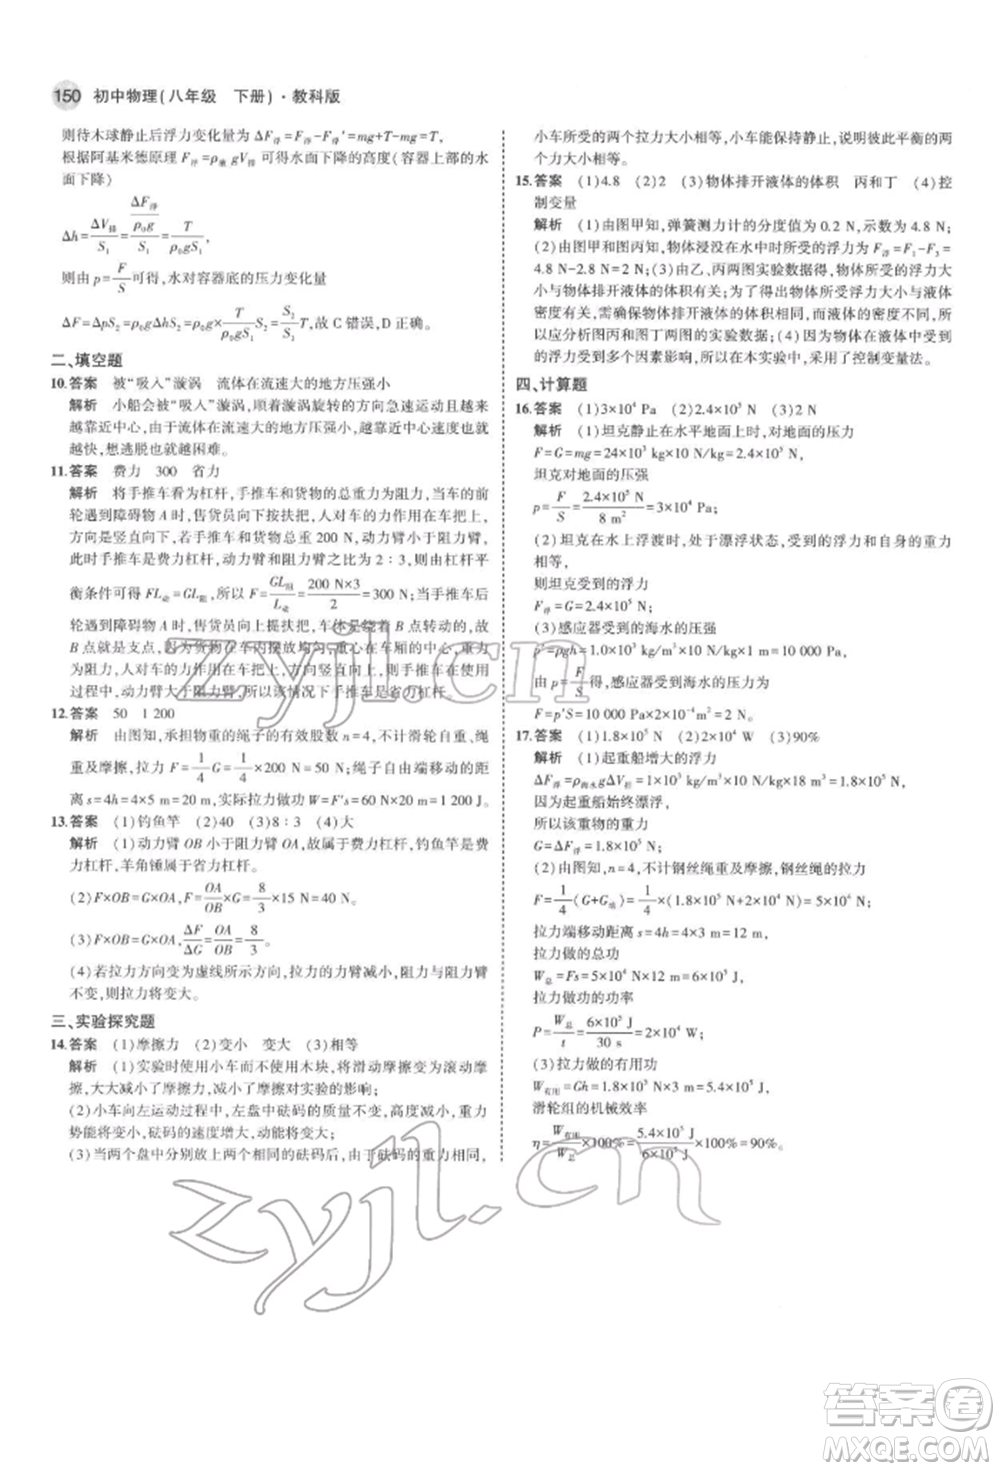 150 初中物理(八年级 下册)·教科版
则待木球静止后浮力变化量为 ΔF浮=F浮-F浮'=mg+T-mg=T,
根据阿基米德原理 F浮=ρ液gV排 可得水面下降的高度(容器上部的水
面下降)
Δh=ΔV排/S₁=(ΔF浮/ρ₀g)/S₁=T/ρ₀gS₁,
则由 p=F/S 可得,水对容器底的压力变化量
ΔF=ΔpS₂=ρ₀gΔhS₂=ρ₀g×T/ρ₀gS₁ S₂=S₂/S₁ T,故 C 错误,D 正确。
二、填空题
10.答案 被“吸入”漩涡 流体在流速大的地方压强小
解析 小船会被“吸入”漩涡,顺着漩涡旋转的方向急速运动并
越靠近中心,由于流体在流速大的地方压强小,故越靠近中心速度
越快,想逃脱就越困难。
11.答案 费力 300 省力
解析 将手推车看为杠杆,手推车和货物的总重力为阻力,当车的前
轮遇到障碍物 A 时,售货员向下按扶把,人对车的力作用在车把上,方
向是竖直向下。若手推车和货物总重 200 N,动力臂小于阻力臂,
此时手推车为费力杠杆,动力臂和阻力臂之比为 2∶3,则由杠杆平
衡条件可得 FL动=GL阻,所以 F=GL阻/L动=200 N×3/2=300 N;当后
轮遇到障碍物 A 时,售货员向上提扶把,车体是绕着 B 点转动的,故
B 点就是支点,因所载货物摆放均匀,重心在车厢的中心处,重力为
为阻力,人对车的力作用在车把上,方向竖直向上,在手推车的使用
过程中,动力臂大于阻力臂,所以该情况下手推车是省力杠杆。
12.答案 50 1 200
解析 由图知,承担物重的绳子的有效股数 n=4,不计滑轮自重、绳
重及摩擦,拉力 F=1/4 G=1/4×200 N=50 N;绳子自由端移动的距
离 s=4h=4×5 m=20 m,实际拉力做功 W=F's=1 200 J。
13.答案 (1)钓鱼竿 (2)40 (3)8∶3 (4)大
解析 (1)动力臂 OB 小于阻力臂 OA,故属于费力杠杆,钓鱼竿是费
力杠杆,羊角锤属于省力杠杆。
(2)F×OB=G×OA,F=OA/OB×G=8/3×15 N=40 N。
(3)F×OB=G×OA,ΔF/ΔG=OA/OB=8/3。
(4)若拉力方向变为虚线所示方向,拉力的力臂减小,阻力与阻力臂
不变,则拉力将变大。
三、实验探究题
14.答案 (1)摩擦力 (2)变小 变大 (3)相等
解析 (1)实验选用小车而不使用木块,将滑动摩擦变为滚动摩
擦,大大减小了摩擦力,减小了摩擦对实验的影响;
(2)小车向左运动过程中,左盘中砝码的质量不变,高度减小,重力
势能将变小,砝码的速度增大,动能将变大;
(3)当两个盘中分别放上两个相同的砝码后,由于砝码的重力相同,
小车所受的两个拉力大小相等,小车能保持静止,说明此彼平衡的两
个力大小相等。
15.答案 (1)4.8 (2)2 (3)物体排开液体的体积 丙和丁 (4)控
制变量
解析 (1)由图甲知,弹簧测力计的分度值为 0.2 N,示数为 4.8 N;
(2)由图甲和图丙知,物体浸没在水中时所受的浮力为 F浮=F₁-F₃=
4.8 N-2.8 N=2 N;(3)由乙、丙两图实验数据知,物体所受的浮力大
小与物体排开液体的体积有关;为了得出物体所受的浮力大小与液体
密度有关,需确保物体排开液体的体积相同,而液体的密度不同,所
以应分析图丙和图丁两的实验数据;(4)因为物体在液体中所受
到的浮力与多个因素影响,所以在本实验中,采用了控制变量法。
四、计算题
16.答案 (1)3×10⁴ Pa (2)2.4×10⁵ N (3)2 N
解析 (1)坦克静止在水平地面上时,对地面的压力
F=G=mg=24×10³ kg×10 N/kg=2.4×10⁵ N
坦克对地面的压强
p=F/S=2.4×10⁵ N/8 m²=3×10⁴ Pa
(2)坦克在水上浮渡时,处于漂浮状态,受到的浮力和自身的重力
相等,
则坦克受到的浮力
F浮=G=2.4×10⁵ N
(3)感应器受到的海水的压强
p'=ρgh=1.0×10³ kg/m³×10 N/kg×1 m=10 000 Pa
由 p=F/S得,感应器受到海水的压力为
F=p'S=10 000 Pa×2×10⁻⁴ m²=2 N。
17.答案 (1)1.8×10⁵ N (2)2×10⁴ W (3)90%
解析 (1)起重船增大的浮力
ΔF浮=ρ海水gΔV排=1×10³ kg/m³×10 N/kg×18 m³=1.8×10⁵ N,
因为起重船始终漂浮,
所以该重物的重力
G=ΔF浮=1.8×10⁵ N。
(2)由图知,n=4,不计钢丝绳重及摩擦,钢丝绳的拉力
F=1/4(G+G动)=1/4×(1.8×10⁵ N+2×10⁴ N)=5×10⁴ N,
拉力端移动距离 s=4h=4×3 m=12 m,
拉力做的总功
W总=Fs=5×10⁴ N×12 m=6×10⁵ J,
拉力做功的功率
P=W总/t=6×10⁵ J/30 s=2×10⁴ W;
(3)拉力做的有用功
W有用=Gh=1.8×10⁵ N×3 m=5.4×10⁵ J,
滑轮组的机械效率
η=W有用/W总×100%=5.4×10⁵ J/6×10⁵ J×100%=90%。
zyjl.cn
zyjl.cn
答案圈
MXQE.COM